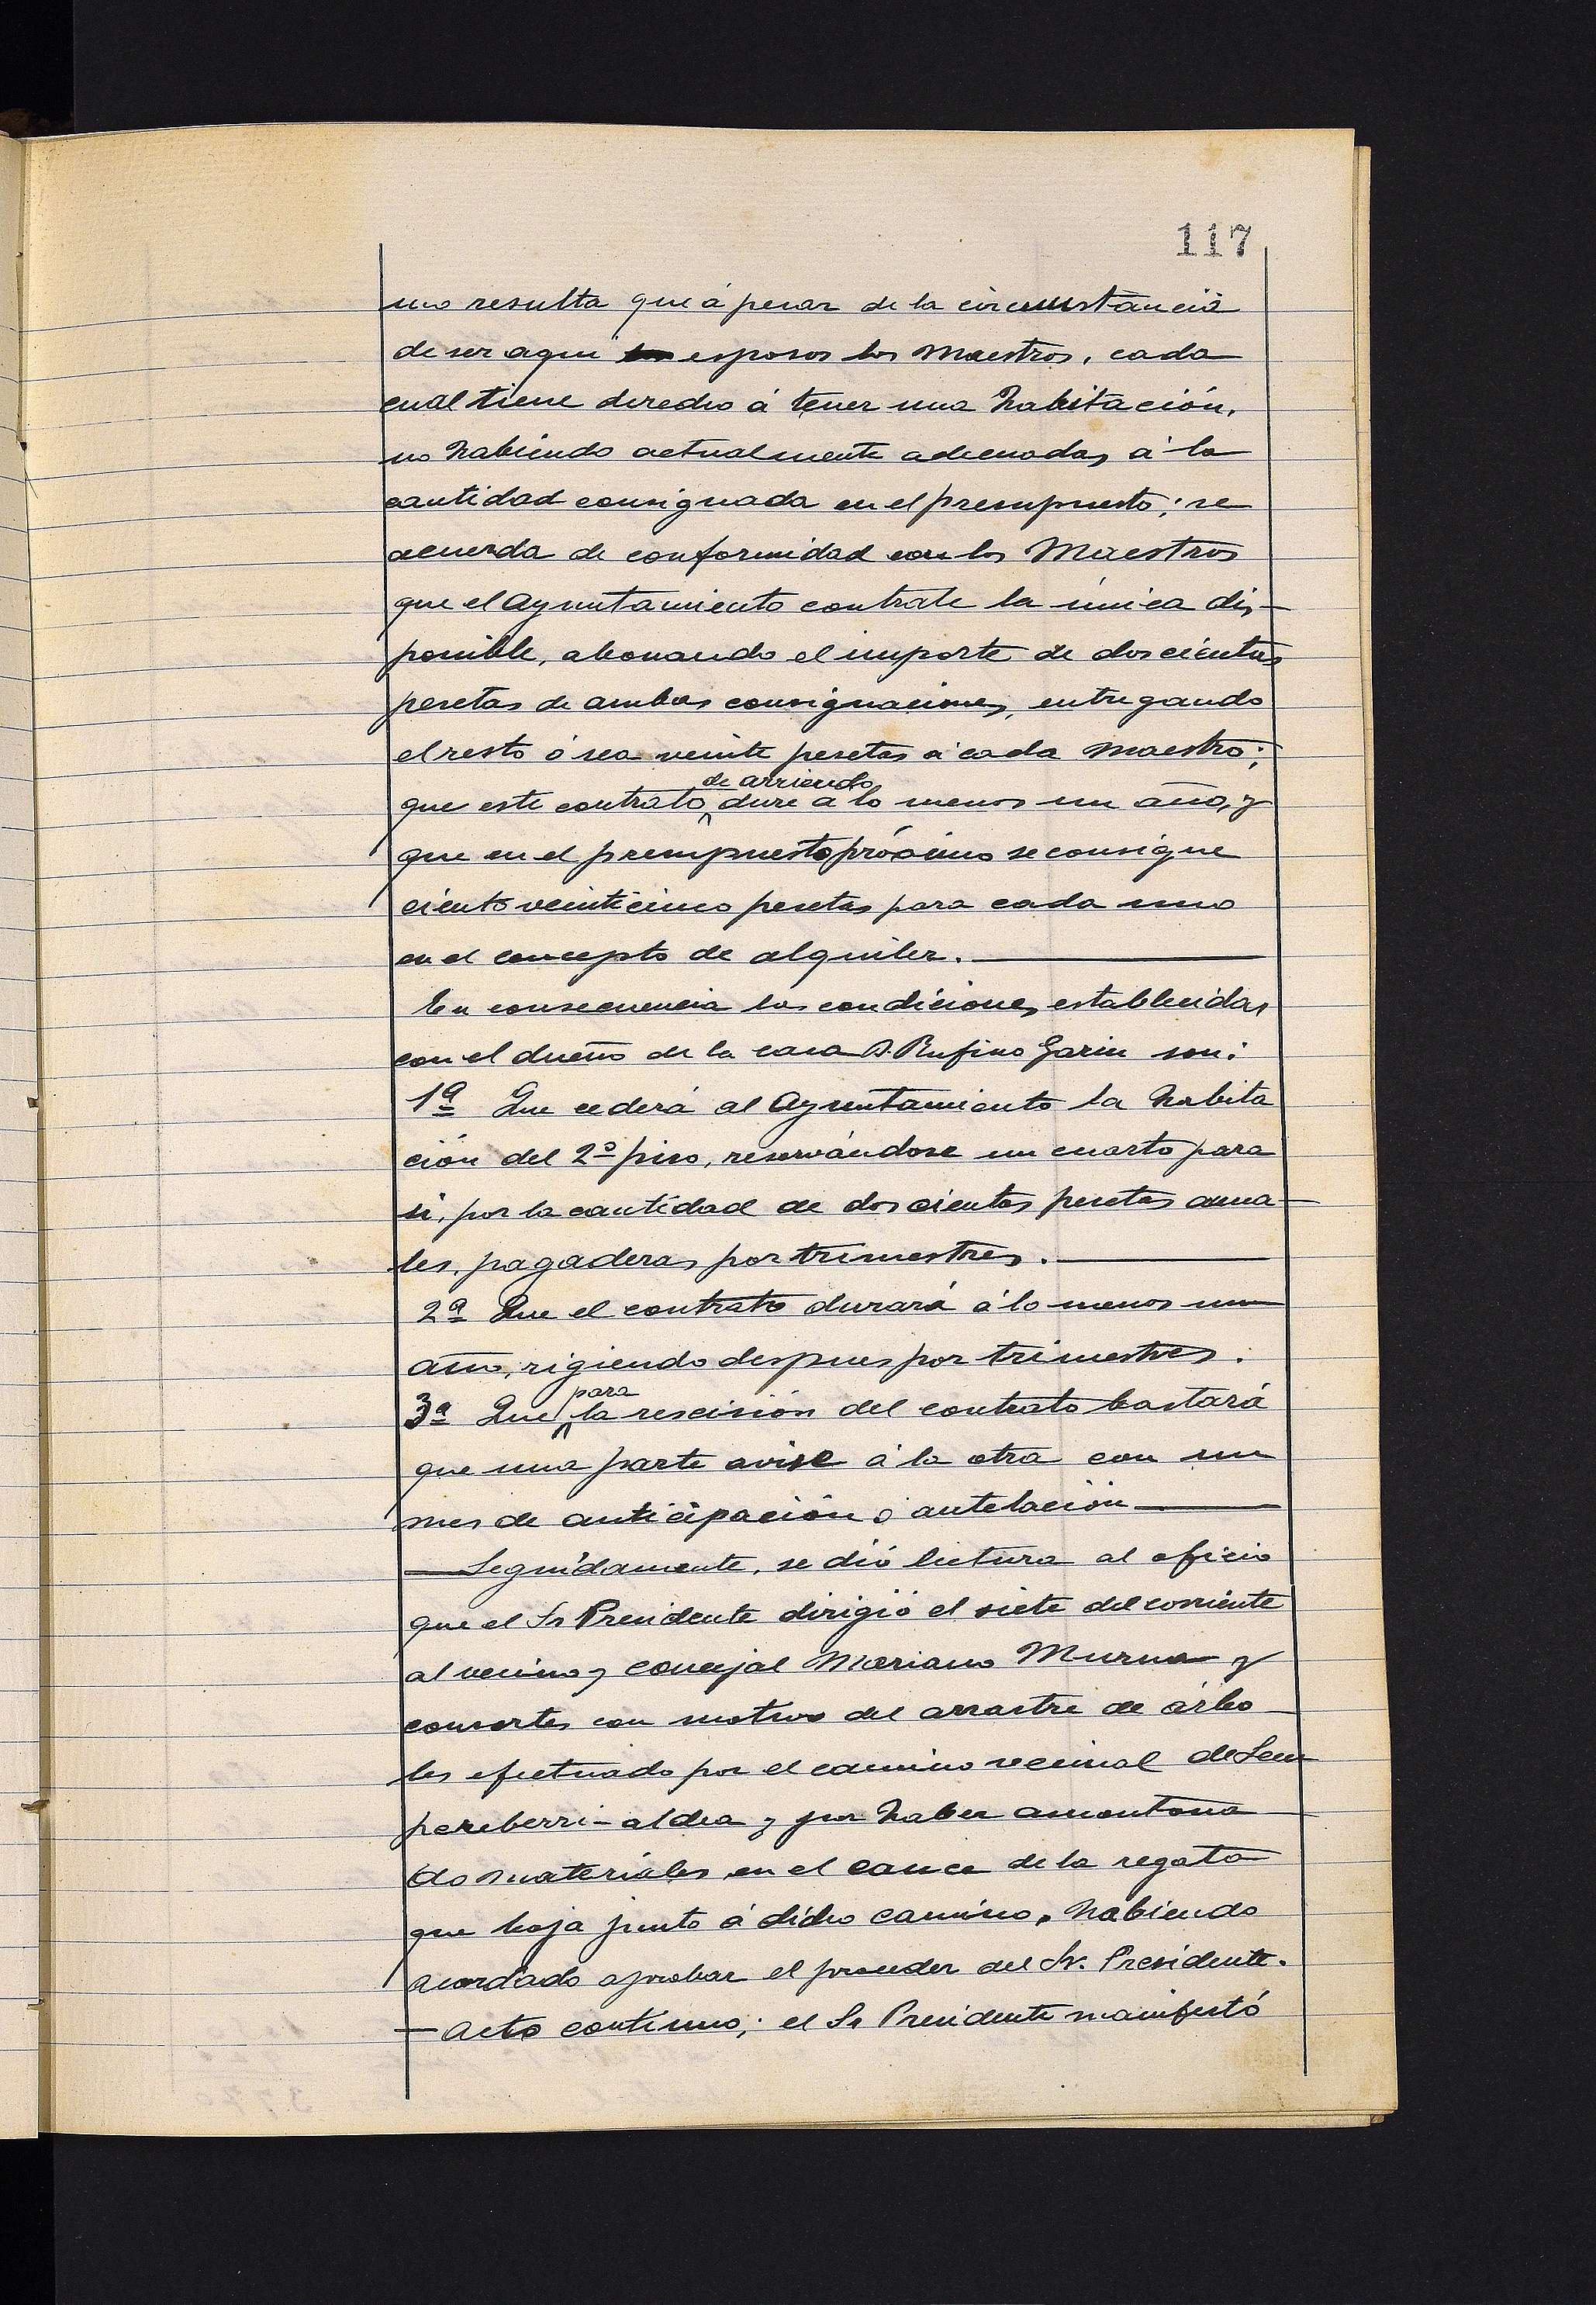 117
mo resulta que á pesar de la circunstancia
de ser aqui esposos los Maestros, cada
cual tiene derecho á tener una habitación,
no habiendo actualmente adecuadas á la
cantidad consignada en el presupuesto; se
acuerda de conformidad con los Maestros
que el Ayuntamiento contrate la única dis-
ponible, abonando el importe de doscientas
pesetas de ambas consignaciones, entregando
el resto ó sea veinte pesetas á cada Maestro;
que este contrato de arriendo dure á lo menos un año, y
que en el presupuesto próximo se consigne
ciento veinticinco pesetas para cada uno
en el concepto de alquiler.
En consecuencia las condiciones establecidas
con el dueño de la casa D. Rufino Garin son:
1ª Que cederá al Ayuntamiento la habita
ción del 2º piso, reservándose un cuarto para
si, por la cantidad de doscientas pesetas anua-
les, pagaderas por trimestres.
2ª Que el contrato durará á lo menos un
año, rigiendo despues por trimestres.
3ª Que para la rescisión del contrato bastará
que una parte avise á la otra con un
mes de anticipación ó antelación
Seguidamente, se dió lectura al oficio
que el Sr Presidente dirigió el siete del corriente
al vecino y concejal Mariano Murua y
consortes con motivo del arrastre de árbo-
les efectuado por el camino vecinal de Sem
pereberri-aldea y por haber amontona
do materiales en el cauce de la regata
que baja junto á dicho camino, habiendo
acordado aprobar el proceder del Sr. Presidente.
— Acto continuo; el Sr Presidente manifestó